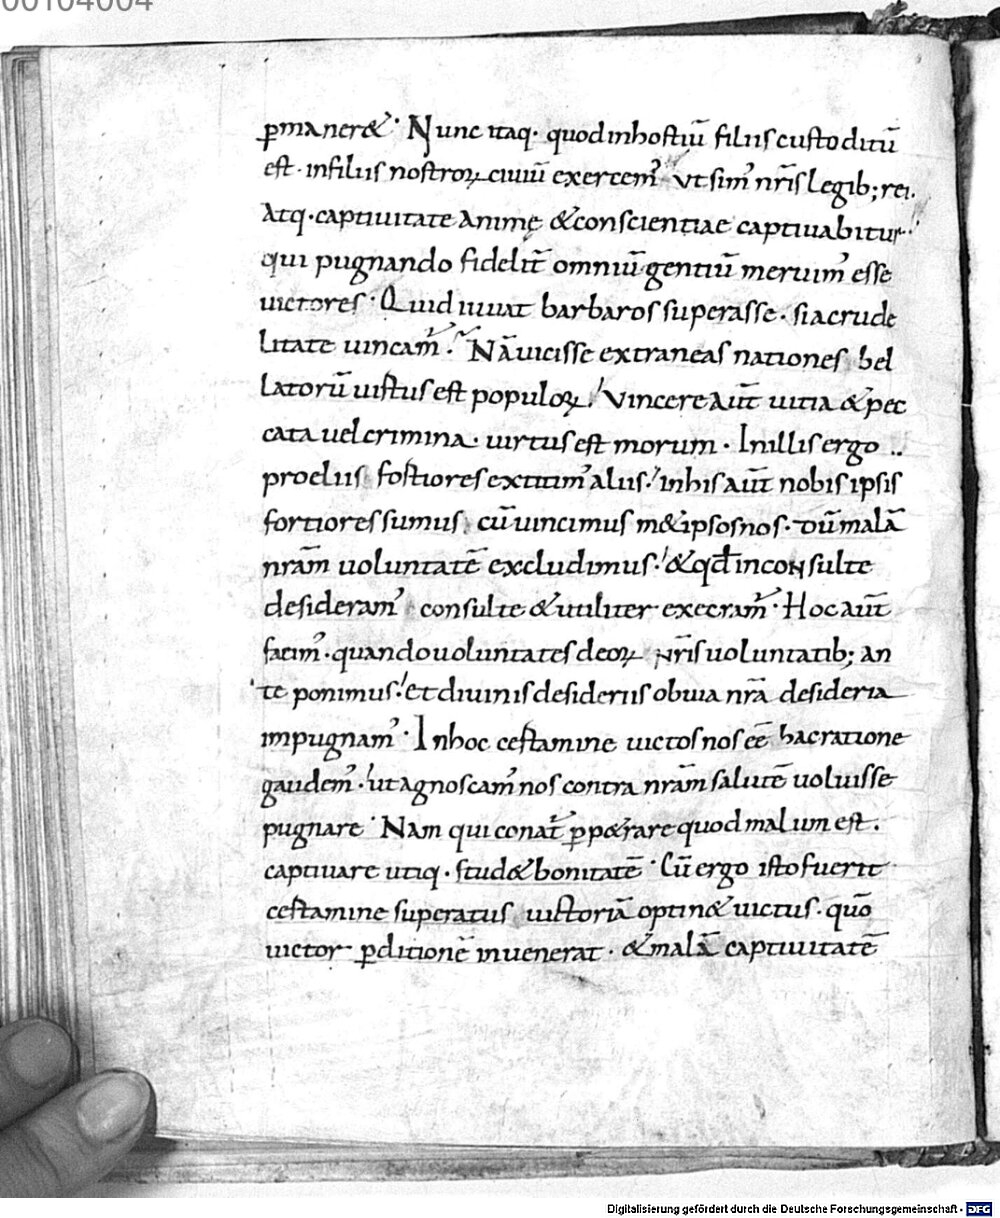 00104004
ꝑmaner&· Nunc itaq· quod inhostiū filiis custoditū
est· infilius nostroꝝ ciuiū exercem᾽ vt sim᾽ nr̄is legib; rei.
Atq· captiuitate animę &conscientiae captiuabitur·
qui pugnando fidelit̄ omniū gentiū meruim᾽ esse
uictores· Quid iuuat barbaros superasse· si acrude
litate uincam᾽. Nā uicisse extraneas nationes bel
latorū uistus est populoꝝ! Vincere aūt uitia & pec
cata uel crimina· uirtus est morum· Inillis ergo ..
proeliis fostiores extitim᾽ aliis! inhis aūt nobis ipsis
fortiores sumus, cū uincimus m&ipsos nos· dū malā
nr̄am uoluntatē excludimus! &qd̄ inconsulte
desideram᾽ consulte &utiliter execram᾽· Hoc aūt
facim᾽· quando uoluntates deoꝝ nr̄is uoluntatib; an
te ponimus! et diuinis desideriis obuia nr̄a desideria
impugnam᾽· Inhoc cestamine uictos nos eē hac ratione
gaudem᾽! ut agnoscam᾽ nos contra nr̄am salutē uoluisse
pugnare· Nam qui conat᾽ ꝑp&rare quod malum est.
captiuare utiq· stud& bonitatē· Cū ergo isto fuerit
cestamine superatus uistoriā optin& uictus· quō
uictor ꝑditionē inuenerat· &malā captiuitatē
Digitalisierung gefördert durch die Deutsche Forschungsgemeinschaft - DFG